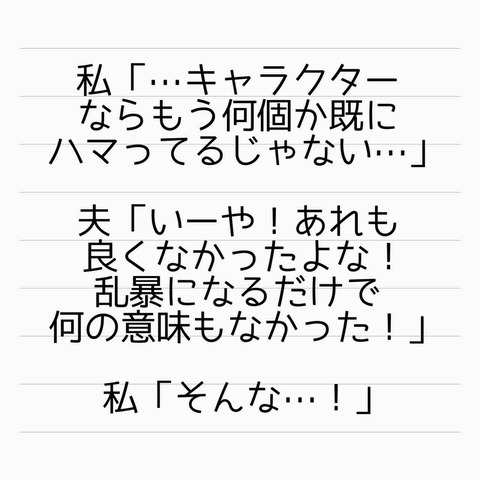 私「…キャラクター
ならもう何個か既に
ハマってるじゃない…」
夫「いーや！あれも
良くなかったよな！
乱暴になるだけで
何の意味もなかった！」
私「そんな…！」